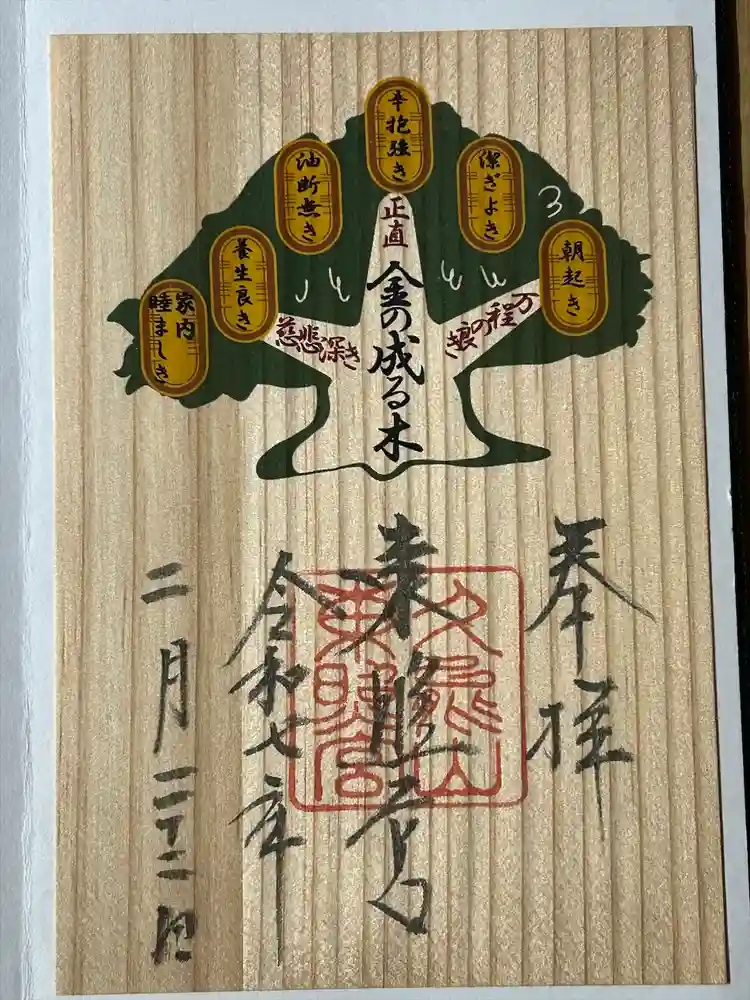 辛抱強き
潔ぎよき
朝起き
油断無き
養生良き
家内
睦ましき
正直
万程の良き
慈悲深き
金の成る木
奉拝
東照宮
久能山
東照宮
令和七年
二月二十二日